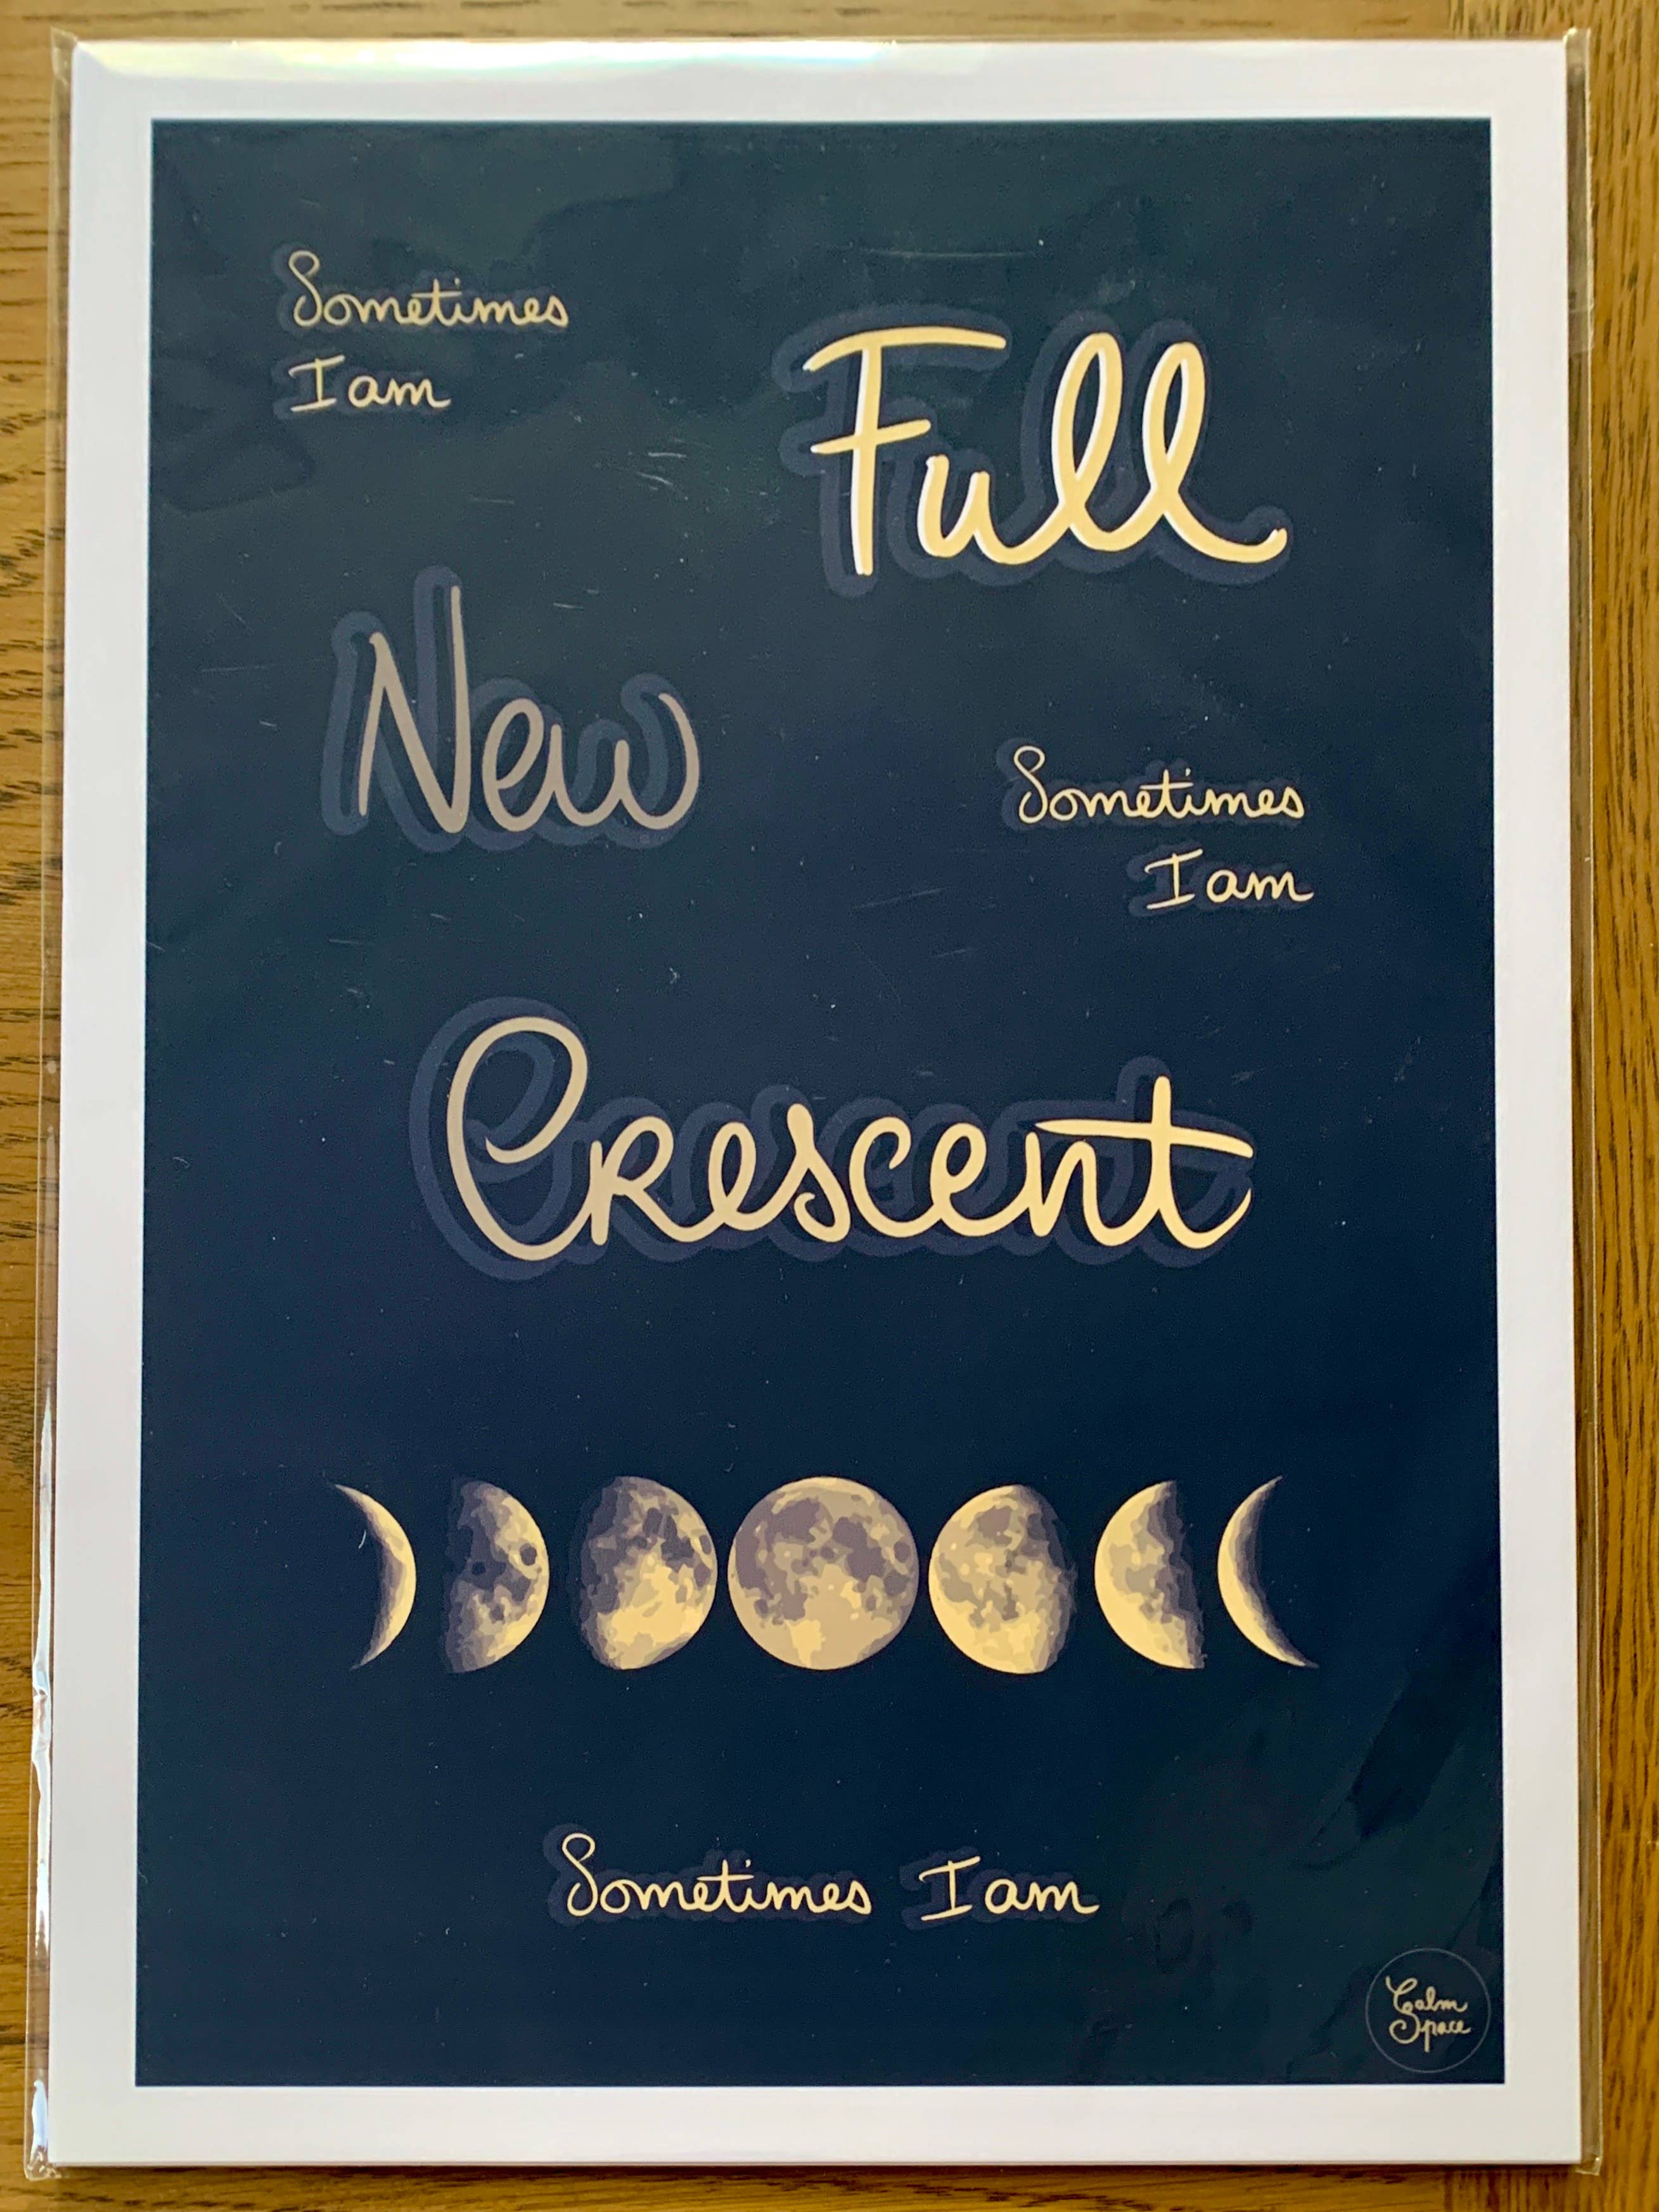 Sometimes
I am
Full
New
Sometimes
I am
Crescent
Sometimes I am
Calm
Space